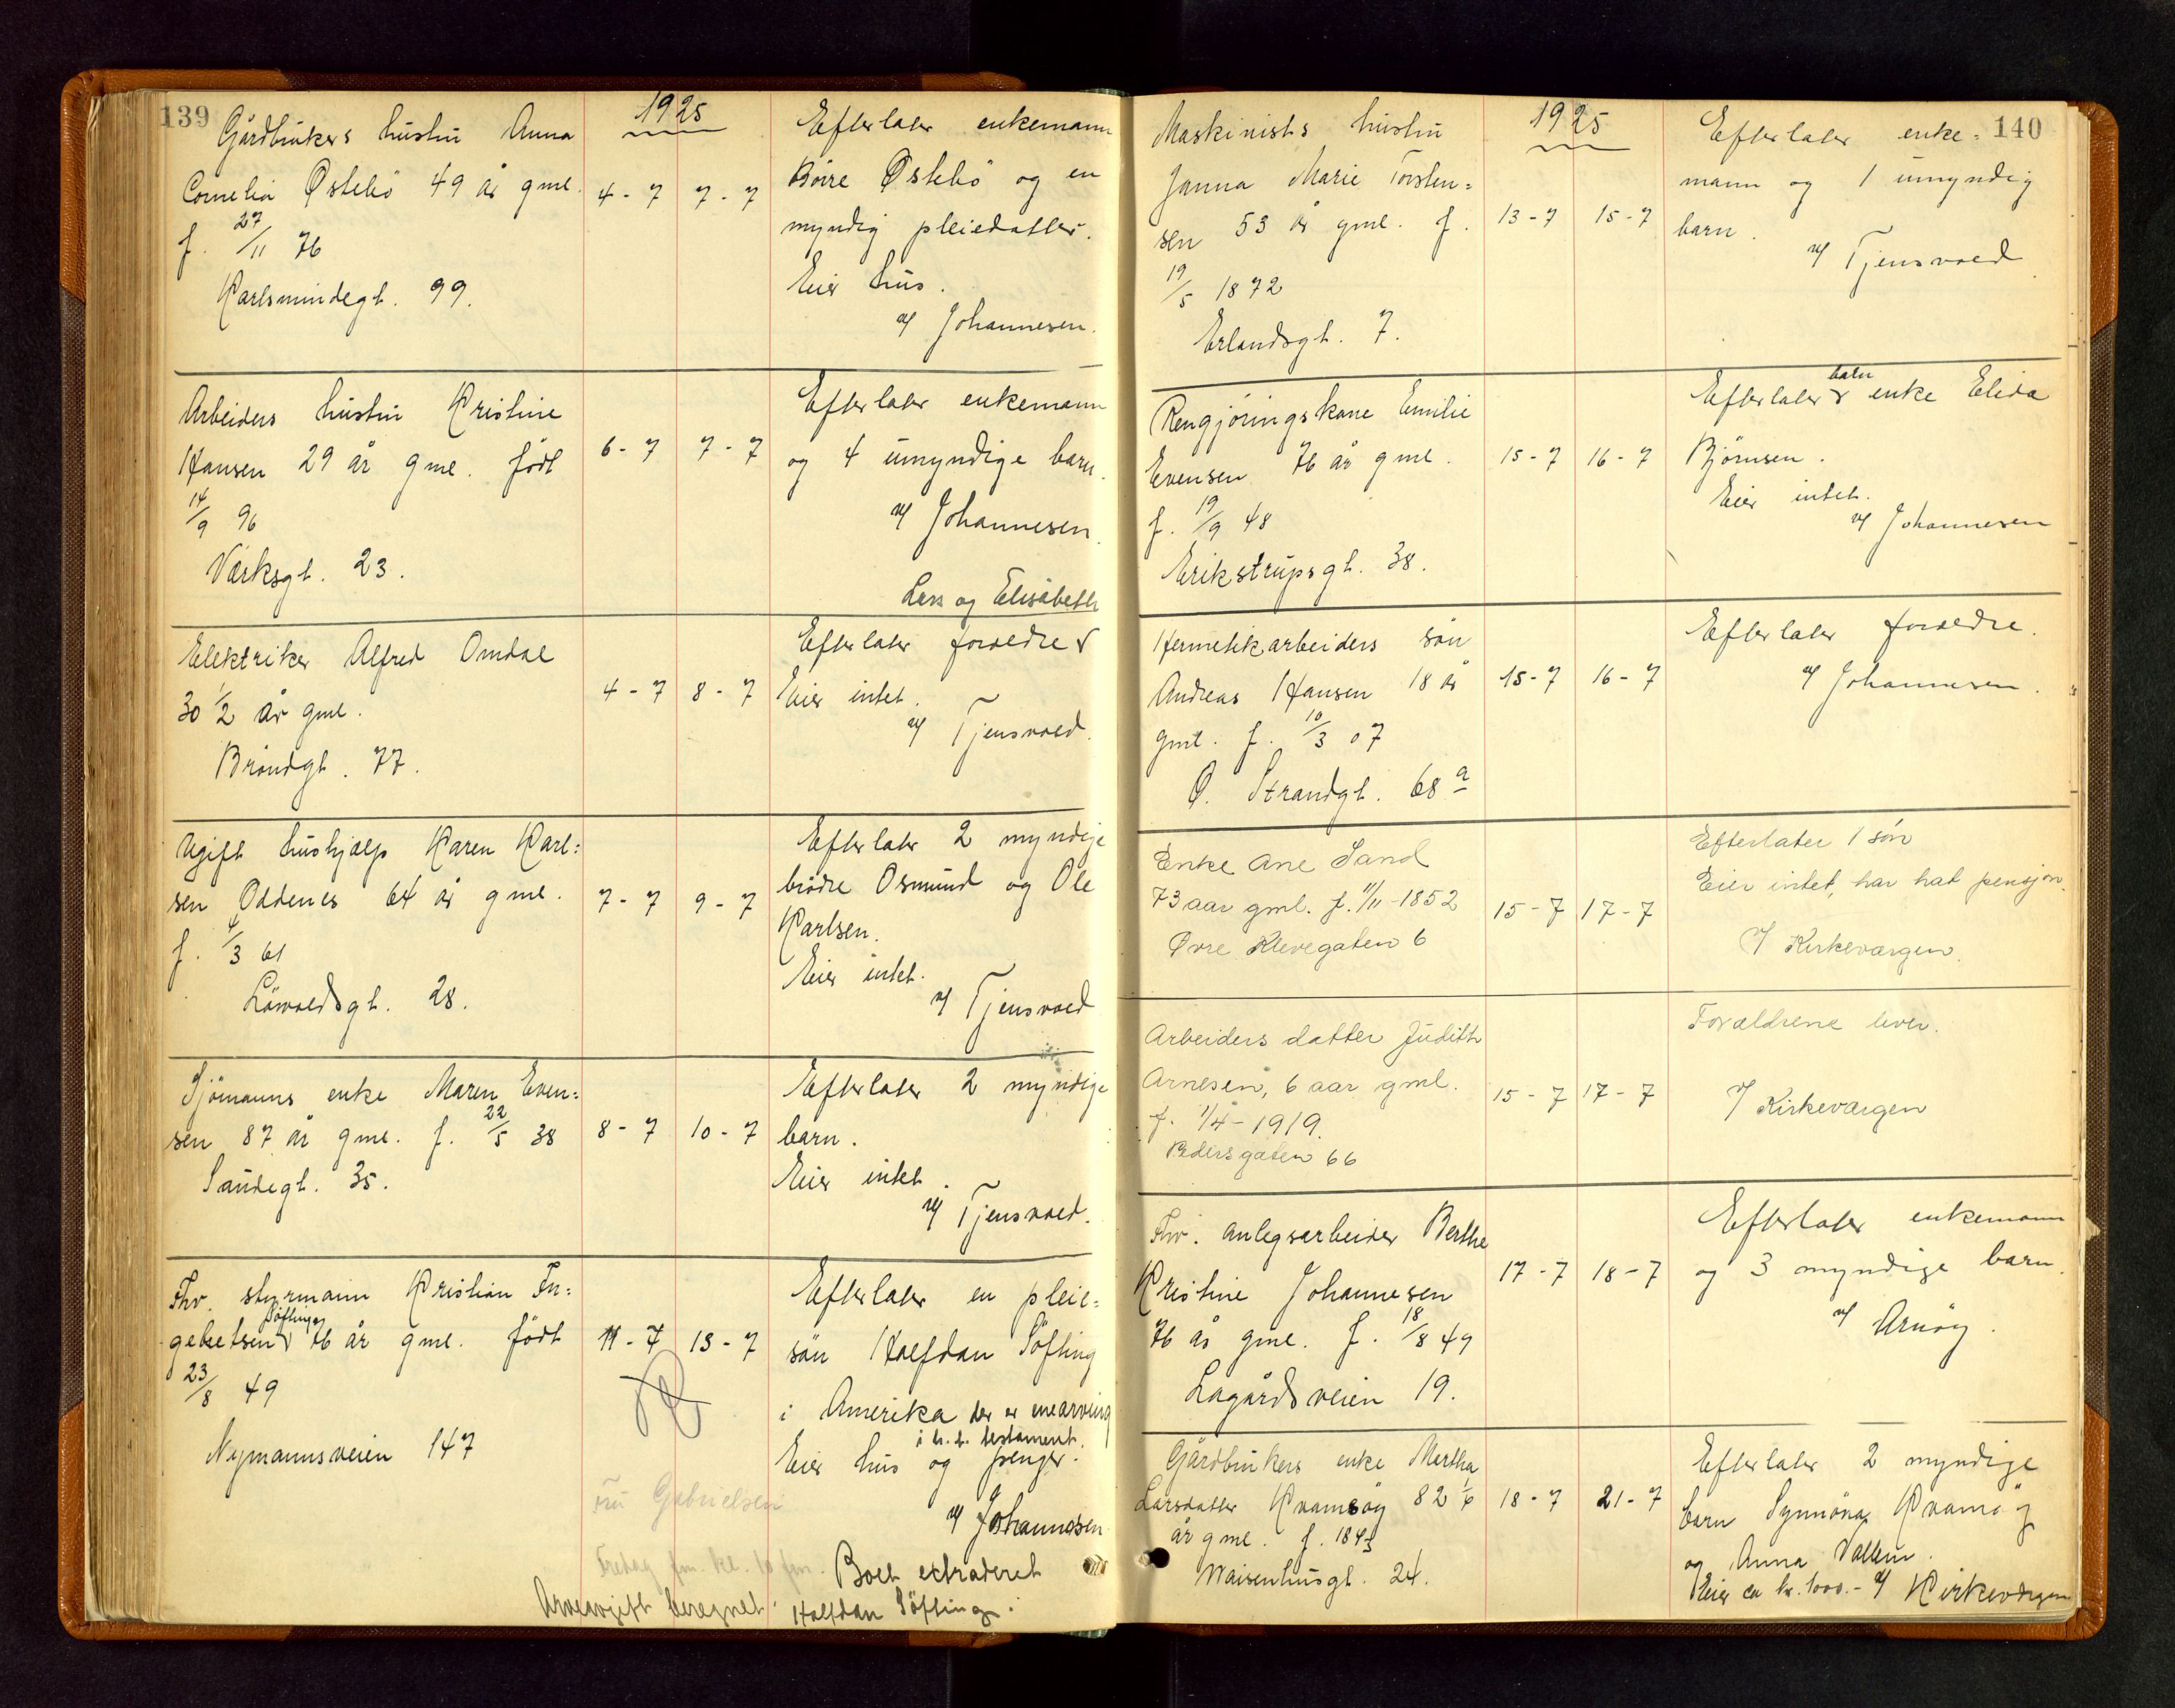 139
1925
Gårdbrukers hustru Anna
Cornelia Østebö 49 år gml.
f. 27/11 76
Karlsmindegt. 99.
4-7 7-7
Efterlater enkemann
Börre Østebö og en
myndig pleiedatter.
Eier hus.
v/ Johannesen.
Arbeiders hustru Kristine
Hansen 29 år gml. født
14/9 96
Værksgt. 23.
6-7 7-7
Efterlater enkemann
og 4 umyndige barn.
v/ Johannesen.
Elektriker Alfred Omdal
30 1/2 år gml.
Bröndgt. 77.
4-7 8-7
Lars og Elisabeth
Efterlater foraldre v
Eier intet.
v/ Tjensvold.
Ugift hushjælp Karen Karl=
sen Oddenes 64 år gml.
f. 4/3 61
Lövoldsgt. 28.
7-7 9-7
Efterlater 2 myndige
brödre Osmund og Ole
Karlsen.
Eier intet.
v/ Tjensvold
Sjömanns enke Maren Even=
sen 87 år gml. f. 22/5 38
Sandegt. 35.
8-7 10-7
Efterlater 2 myndige
barn.
Eier intet.
v/ Tjensvold.
Fhv. styrmann Kristian In=
Söfting
gebretsen v 76 år gml. født
23/8 49
Nymannsveien 147
11-7 13-7
Efterlater en pleie=
sön Halfdan Söfting
i Amerika der er enearving
i h.t. testament.
Eier hus og penger.
v/ Johannesen
Fru Gabrielsen
Fredag fm. kl. 10 fm.
Boet extraderet
Arveavgift beregnet. Halfdan Söfting.
140
1925
Maskinists hustru
Janna Marie Torsten=
sen 53 år gml. f.
19/5 1872
Erlandsgt. 7.
13-7 15-7
Efterlater enke=
mann og 1 umyndig
barn.
v/ Tjensvold
Rengjöringskone Emilie
Evensen 76 år gml.
f. 19/9 48
Erikstrupsgt. 38.
15-7 16-7
barn
Efterlater v enke Elida
Björnsen.
Eier intet.
v/ Johannesen
Hermetikarbeiders sön
Andreas Hansen 18 år
gml. f. 10/3 07
Ø. Strandgt. 68 a
15-7 16-7
Efterlater foraldre.
v/ Johannesen.
Enke Ane Sand
73 aar gml. f. 11/11-1852
Øvre Klevegaten 6
15-7 17-7
Efterlater 1 søn
Eier intet, har hat pensjon.
v/ Kirkevargen.
Arbeiders datter Judith
Arnesen, 6 aar gml.
f. 1/4-1919.
Pedersgaten 66
15-7 17-7
Forældrene lever.
v/ Kirkevargen
Fhv. anlegsarbeider Berthe
Kristine Johannesen
76 år gml. f. 18/8 49
Lagårdsveien 19.
17-7 18-7
Efterlater enkemann
og 3 myndige barn.
v/ Arnöy.
Gårdbrukers enke Martha
Larsdatter Kvamsöy 82 1/6
år gml. f. 1843
Waisenhusgt. 24.
18-7 21-7
Efterlater 2 myndige
barn Synnöva Kvamsöy
og Anna Vallem.
Eier ca kr. 1000.- v/ Kirkevergen